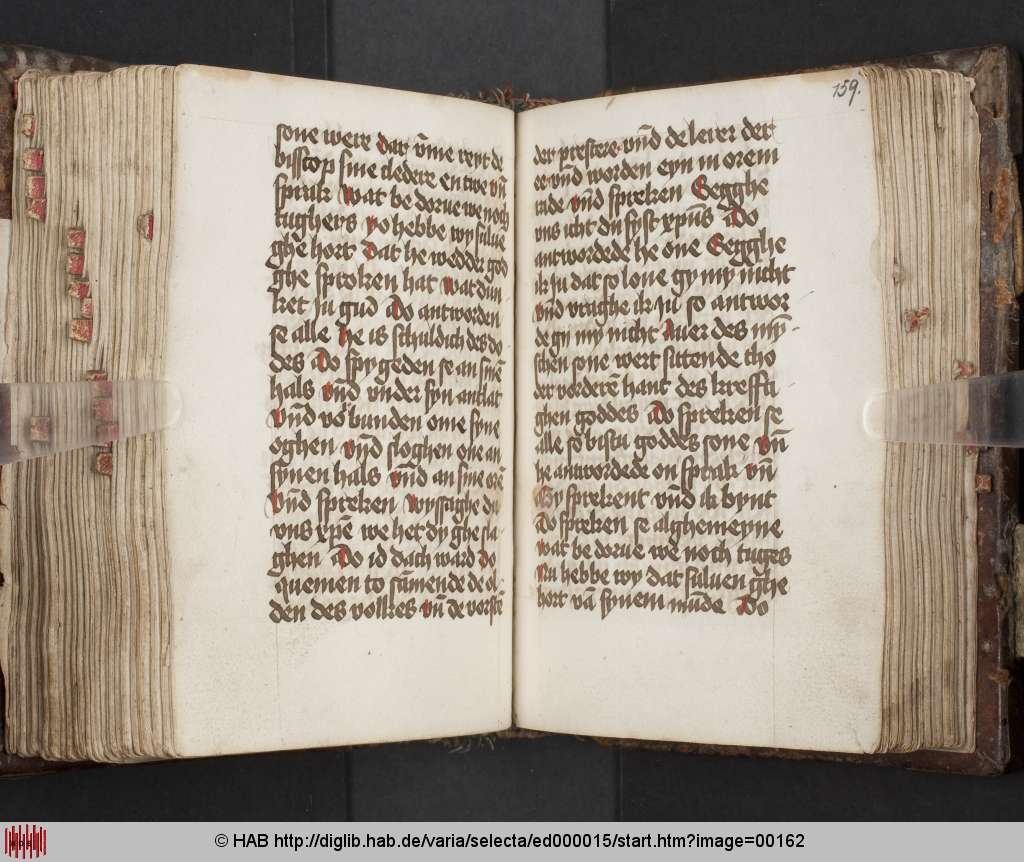 sone were dar v̄me reyt de
bisscop sine cledere entwe vn̄
sprak wat be dorue we noch
tughes yo hebbe wy sulue
ghe hort dat he wedder god
ghe sproken hat wat dun
ket ju gud do antworden
se alle he is schuldich des do
des do spygeden se an sinē
hals vnd vnder syn antlat
vnd vor bunden ome syne
oghen vnd sloghen one an
synen hals vnd an sine orē
vnd spreken wyssaghe du
vns xp̄e we het dy ghe sla
ghen do id dach ward do
quemen to sāmende de ol
den des volkes vn̄ de vorstē
159.
der prestere vnd de lerer der
ee vnd worden eyn in orem
rade vnd spreken Segghe
vns icht du syst xp̄us do
antwordede he one Segghe
ik ju dat so loue gy my nicht
vnd vraghe ik ju so antwor
de gy my nicht Auer des mȳ-
schen sone wert sittende tho
der vordere hant des kreffti
ghen goddes do spreken se
alle so bistu goddes sone vn̄
he antwordede on sprak vn̄
Gy sprekent vnd ik bynt
do spreken se alghemeyne
wat be dorue we noch tuges
Nu hebbe wy dat suluen ghe
hort vā synem mūde do
© HAB http://diglib.hab.de/varia/selecta/ed000015/start.htm?image=00162